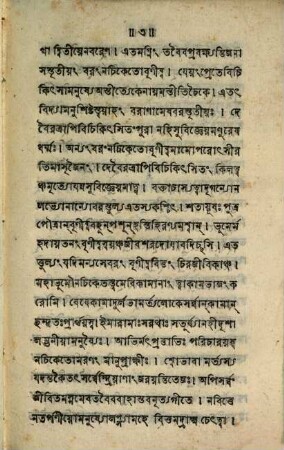 ॥ ৩ ॥
থা দ্বিতীয়েনবরেণ। এতমগ্নিং তবৈবপ্রবক্ষ্যন্তিজনা
সস্তৃতীয়ং বরংনচিকেতোবৃণীষ্ব। যেয়ংপ্রেতেবিচি
কিৎসামনুষ্যে অস্তীত্যেকেনায়মস্তীতিচৈকে। এতৎ
বিদ্যামনুশিষ্টস্ত্বয়াহং বরাণামেষবরস্তৃতীয়ঃ। দে
বৈরত্রাপিবিচিকিৎসিতংপুরা নহিসুবিজ্ঞেয়মণুরেষ
ধর্ম্মঃ। অন্যংবরংনচিকেতোবৃণীষ্বমামোপরোৎসীর
তিমাসৃজৈনং। দেবৈরত্রাপিবিচিকিৎসিতং কিলত্ব
ঞ্চমৃত্যোযন্নসুবিজ্ঞেয়মাত্থ। বক্তাচাস্যত্বাদৃগন্যোন
লভ্যোনান্যোবরস্তুল্য এতস্যকশ্চিৎ। শতায়ুষঃ পুত্র
পৌত্রান্বৃণীষ্ববহূন্পশূন্হস্তিহিরণ্যমশ্বান্। ভূমের্ম
হদায়তনং বৃণীষ্বস্বয়ঞ্চজীবশরদোযাবদিচ্ছসি। এত
ত্তুল্যং যদিমন্যসেবরং বৃণীষ্ববিত্তং চিরজীবিকাঞ্চ।
মহাভূমৌনচিকেতস্ত্বমেধিকামানাং ত্বাকামভাজংক
রোমি। যেযেকামাদুর্লভামর্ত্ত্যলোকেসর্ব্বান্কামান্
ছন্দতঃপ্রার্থয়স্ব। ইমারামাঃসরথাঃ সতূর্য্যানহীদৃশা
লম্ভনীয়ামনুষ্যৈঃ। আভির্মৎপ্রত্তাভিঃ পরিচারয়স্ব
নচিকেতোমরণং মানুপ্রাক্ষীঃ। শ্বোভাবা মর্ত্ত্যস্য
যদন্তকৈতৎ সর্ব্বেন্দ্রিয়াণাংজরয়ন্তিতেজঃ। অপিসর্ব্বং
জীবিতমল্পমেবতবৈববাহাস্তবনৃত্যগীতে। নবিত্তে
নতর্পণীয়োমনুষ্যোলপ্স্যামহে বিত্তমদ্রাক্ষ্ম চেৎত্বা।